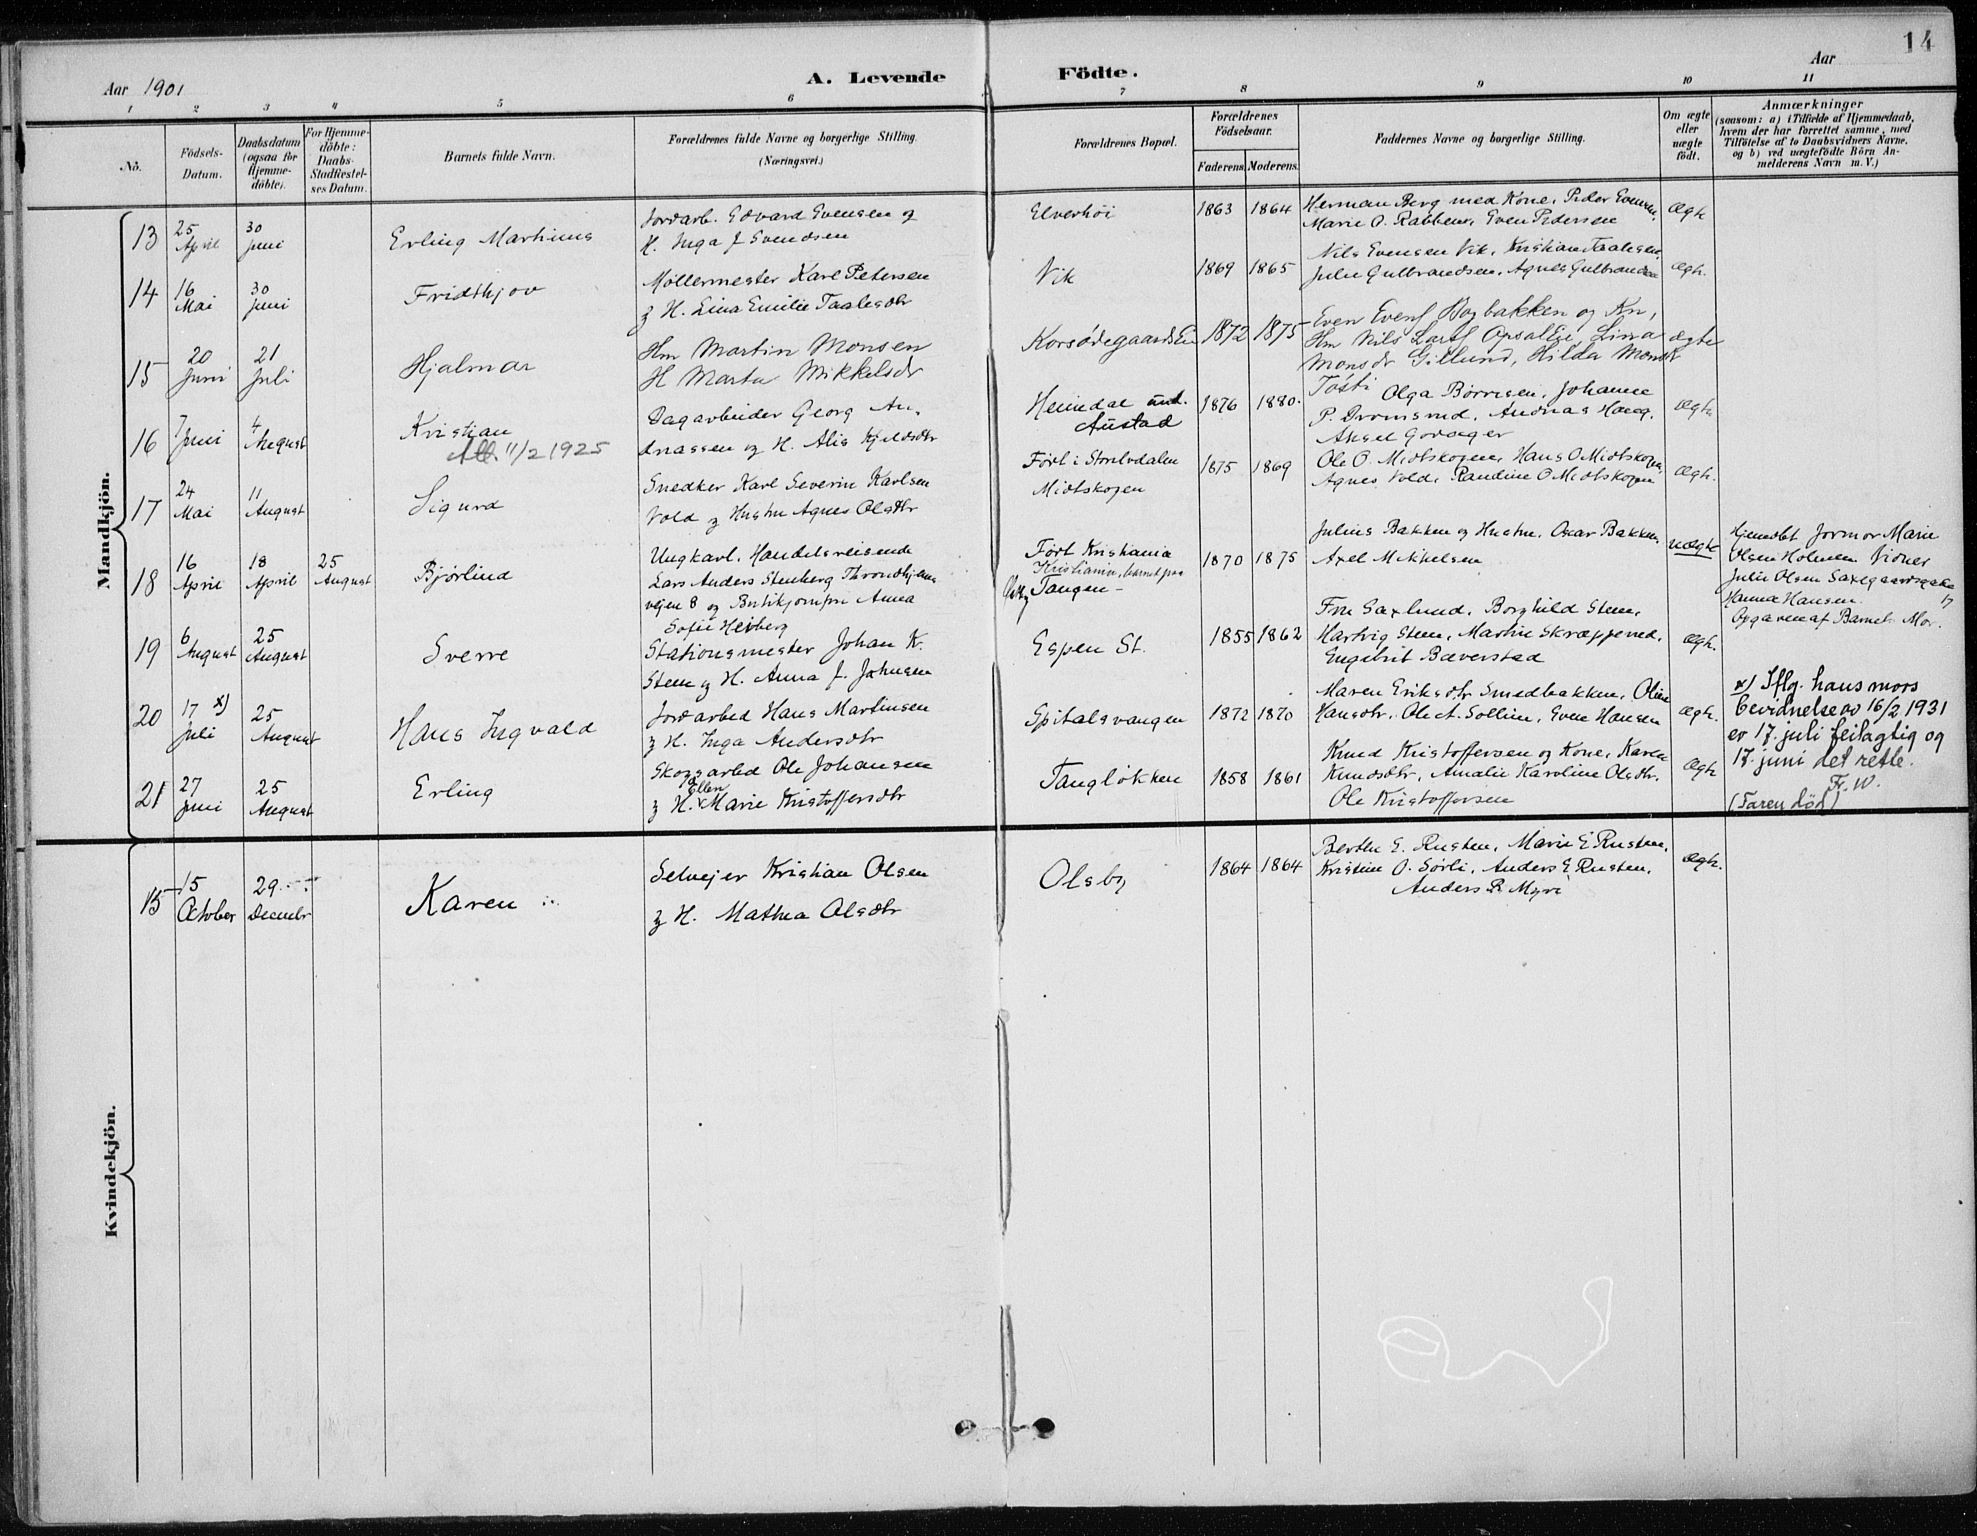 14
Aar 1901
A. Levende Födte.
Aar
1 2 3 4 5 6 7 8 9 10 11
No.
Födsels-
Datum.
Daabsdatum
(ogsaa for
Hjemme-
döbte).
For Hjemme-
döbte:
Daabs-
Stadfæstel-
ses Datum.
Barnets fulde Navn.
Forældrenes fulde Navne og borgerlige Stilling.
(Næringsvei.)
Forældrenes Bopæl.
Forældrenes
Födselsaar.
Faderens. Moderens.
Faddernes Navne og borgerlige Stilling.
Om ægte
eller
uægte
födt.
Anmærkninger
(saasom: a) i Tilfælde af Hjemmedaab,
hvem der har forrettet samme, med
Tilföielse af to Daabsvidners Navne,
og b) ved uægtefödte Börn An-
melderens Navn m. V.)
Mandkjön.
13
25
April
30
Juni
Erling Martinius
Jordarb. Edvard Evensen og
H. Inga J. Svendsen
Elverhöi
1863 1864
Herman Berg med Kone, Peder Evensen,
Marie O. Rabben, Even Pedersen
Ægte
14
16
Mai
30
Juni
Fridthjov
Møllermester Karl Petersen
og H. Lina Emilie Taalesdtr
Vik
1869 1865
Nils Evensen Vik, Kristian Taalesen,
Julie Gulbrandsen, Agnes Gulbrandsen
Ægte.
15
20
Juni
21
Juli
Hjalmar
Hm Martin Monsen
H Marta Mikkelsdr
Korsødegaards Ei
1872 1875
Even Evens Bogbakken og Kn,
Hm Nils Lars Opsal Ei, Lina
Monsdr Gillund, Hilda Monsdr
Tosti
ægte
16
7
Juni
4
August
Kristian
Att. 11/2 1925
Dagarbeider Georg An-
dreassen og H. Alis Kjeldsdtr
Heimdal und.
Austad
1876 1880.
Olga Børresen, Johanne
P. Dromsrud, Andreas Haug,
Aksel Godager
Ægte
17
24
Mai
11
August
Sigurd
Snedker Karl Severin Karlsen
Vold og Hustru Agnes Olsdtr
Født i Storelvdalen
Midtskogen
1875 1869
Ole O. Midtskogen, Hans O Midtskogen,
Agnes Vold, Randine O Midtskogen
Ægte.
18
16
April
18
April
25
August
Bjørlind
Ungkarl, Handelsreisende
Lars Anders Stenberg Throndhjems
vejen 8 og Butikjomfru Anna
Sofie Heiberg
Født Kristiania
Kristiania, barnet paa
Tangen -
1870 1875
Julius Bakken og Hustru, Oscar Bakken,
Axel Mikkelsen
uægte
Hjemdøbt Jormor Marie
Olsen Holmen Vidner
Julie Olsen Saxegaardsgaden
Hanna Hansen. 17
Opgaven af Barnets Mor.
19
6
August
25
August
Sverre
Stationsmester Johan K.
Steen og H. Anna J. Johnsen
Espen St.
1855 1862
Fru Saxlund, Borghild Steen,
Hartvig Steen, Martin Skræppered,
Engebrit Bæverstad
Ægte.
20
17 x)
Juli
25
August
Hans Ingvald
Jordarbed Hans Martinsen
og H. Inga Andersdtr
Spitalsvangen
1872 1870
Maren Eriksdtr Smedbakken, Oline
Hansdtr, Ole A. Sollien, Even Hansen
Ægte.
x) Iflg. hans mors
bevidnelse av 16/2 1931
er 17. juli feilagtig og
17. juni det rette.
Fr. W.
21
27
Juni
25
August
Erling
Skogsarbed Ole Johansen
Ellen
og H. x Marie Kristoffersdtr
Tangløkken
1858 1861
Knud Kristoffersen og Kone, Karen
Knudsdtr, Amalie Karoline Olsdtr.
Ole Kristoffersen
Ægte
(Faren død)
Kvindekjön.
15
15
October
29
Decembr
Karen
Selvejer Kristian Olsen
og H. Mathea Olsdtr
Olsby
1864 1864
Berthe E. Rusten, Marie E Rusten,
Kristine O. Sørli, Anders E Rusten,
Anders P. Myre
Ægte.